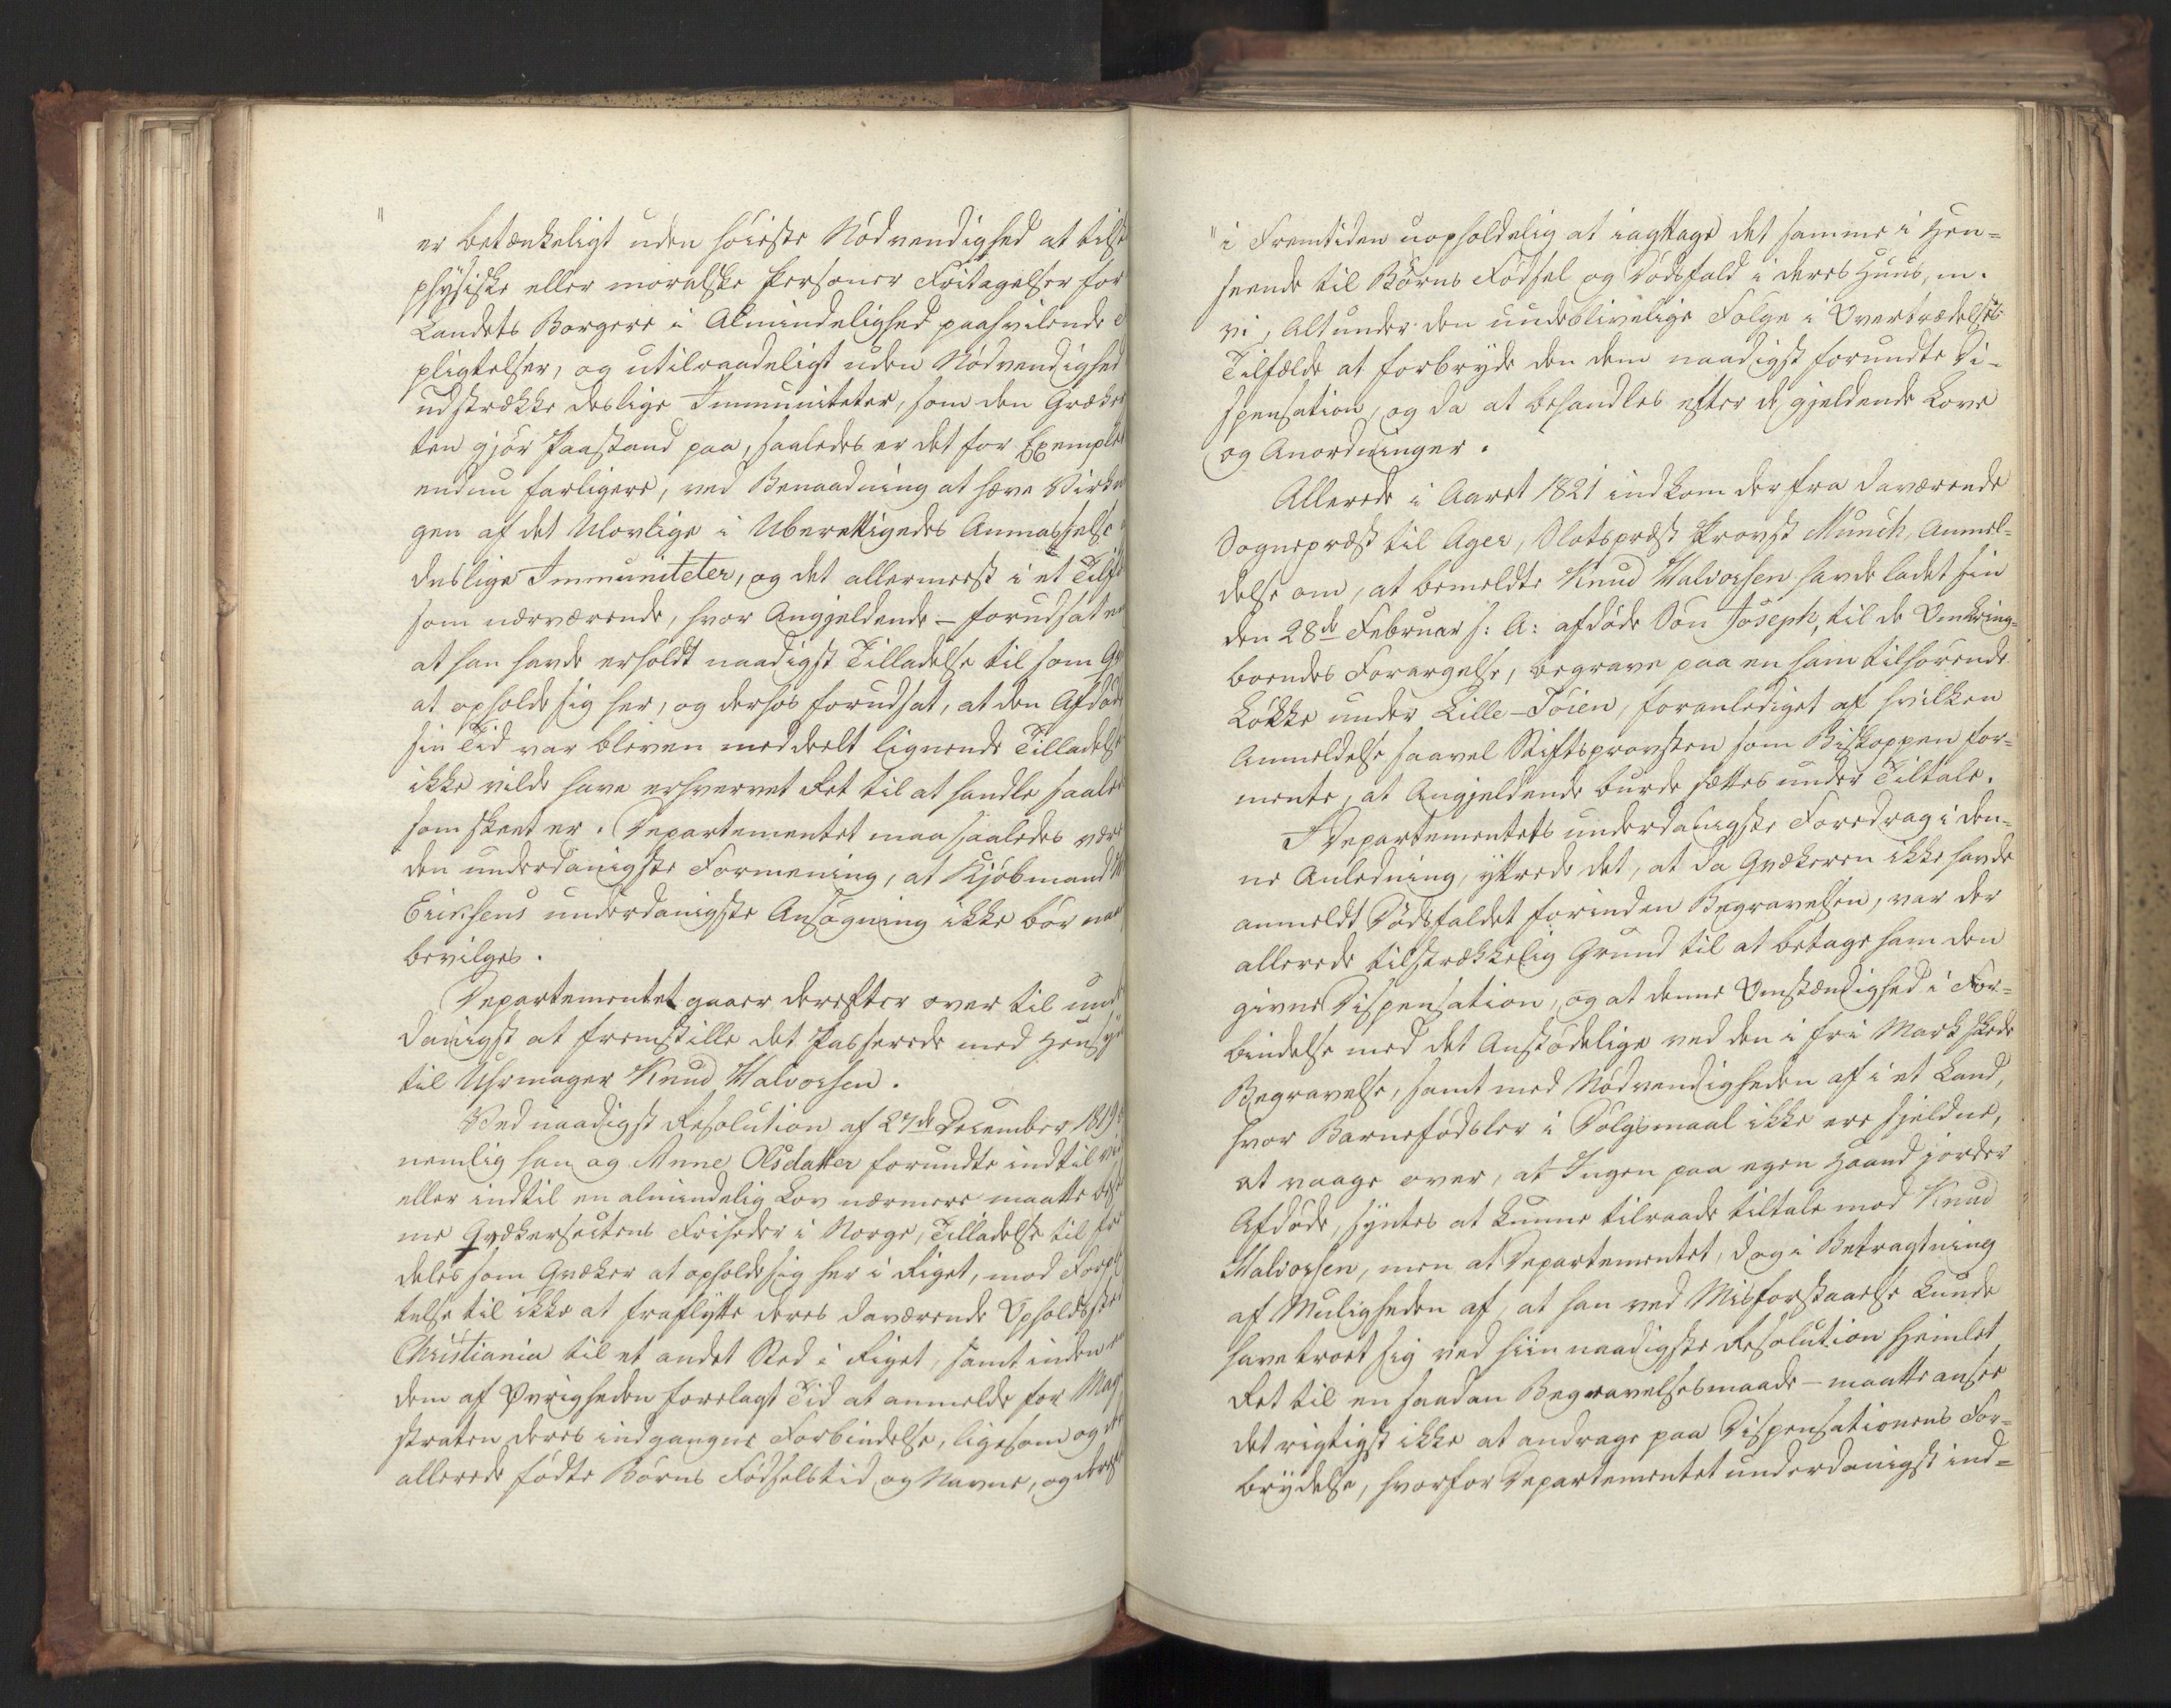 "
er betænkeligt uden høieste Nødvendighed at tilst
physiske eller moralske Personer Fritagelser for
Landets Borgere i Almindelighed paahvilende
pligtelser, og utilraadeligt uden Nødvendighed
udstrække deslige Immuniteter, som den Qvæker
ten gjør Paastand paa, saaledes er det for Exempl
endnu farligere, ved Benaadning at hæve Virkn
gen af det Ulovlige i Uberettigedes Anmasselse
deslige Immuniteter, og det allermeest i et Tilf
som nærværende, hvor Angjeldende – forudsat en
at han havde erholdt naadigst Tilladelse til som Qv
at opholde sig her, og derhos forudsat, at den Afdøde
sin Tid var bleven meddeelt lignende Tilladelse
ikke vilde have erhvervet Ret til at handle saale
som skeet er. Departementet maa saaledes være
den underdanigste Formening, at Kjøbmand
Eriksens underdanigste Ansøgning ikke bør naa
bevilges.
Departementet gaaer derefter over til und
danigst at fremstille det Passerede med Hensyn
til Uhrmager Knud Halvorsen.
Ved naadigst Resolution af 27de December 1819
nemlig han og Anne Olsdatter forundte indtil vid
eller indtil en almindelig Lov nærmere maatte best
me Qvækersectens Friheder i Norge, Tilladelse til
deles som Qvæker at opholde sig her i Riget, mod Forpl
telse til ikke at fraflytte deres daværende Opholdssted
Christiania til et andet Sted i Riget, samt inden en
dem af Øvrigheden forelagt Tid at anmelde for Mag
straten deres indgangne Forbindelse, ligesom og
allerede fødte Børns Fødselstid og Navne, og
" i Fremtiden uopholdelig at iagttage det samme i Hen=
seende til Børns Fødsel og Dødsfald i deres Huus, m.
vi, Alt under den undeblivelige Følge i Overtrædelses
Tilfælde at forbryde den dem naadigst forundte Di-
spensation, og da at behandles efter de gjeldende Love
og Anordninger.
Allerede i Aaret 1821 indkom der fra daværende
Sognepræst til Ager, Slotspræst Provst Munch, Anmel=
delse om, at bemeldte Knud Halvorsen havde ladet sin
den 28de Februar s: A: afdøde Søn Joseph, til de Omkring=
boendes Forargelse, begrave paa en ham tilhørende
Løkke under Lille-Tøien, foranlediget af hvilken
Anmeldelse saavel Stiftsprovsten som Biskoppen for=
mente, at Angjeldende burde sættes under Tiltale.
I Departementets underdanigste Foredrag i den=
ne Anledning, yttrede det, at da Qvækeren ikke havde
anmeldt Dødsfaldet forinden Begravelsen, var der
allerede tilstrækkelig Grund til at betage ham den
givne Dispensation, og at denne Omstændighed i For=
bindelse med det Anstødelige ved den i fri Mark skede
Begravelse, samt med Nødvendigheden af i et Land,
hvor Barnefødsler i Dølgsmaal ikke ere sjeldne,
at vaage over, at Ingen paa egen Haand jorder
Afdøde, syntes at kunne tilraade Tiltale mod Knud
Halvorsen, men at Departementet, dog i Betragtning
af Muligheden af, at han ved Misforstaaelse kunde
have troet sig ved hiin naadigste Resolution hjemlet
Ret til en saadan Begravelsesmaade – maatte ansee
det rigtigst ikke at andrage paa Dispensationens For=
brydelse, hvorfor Departementet underdanigst ind=